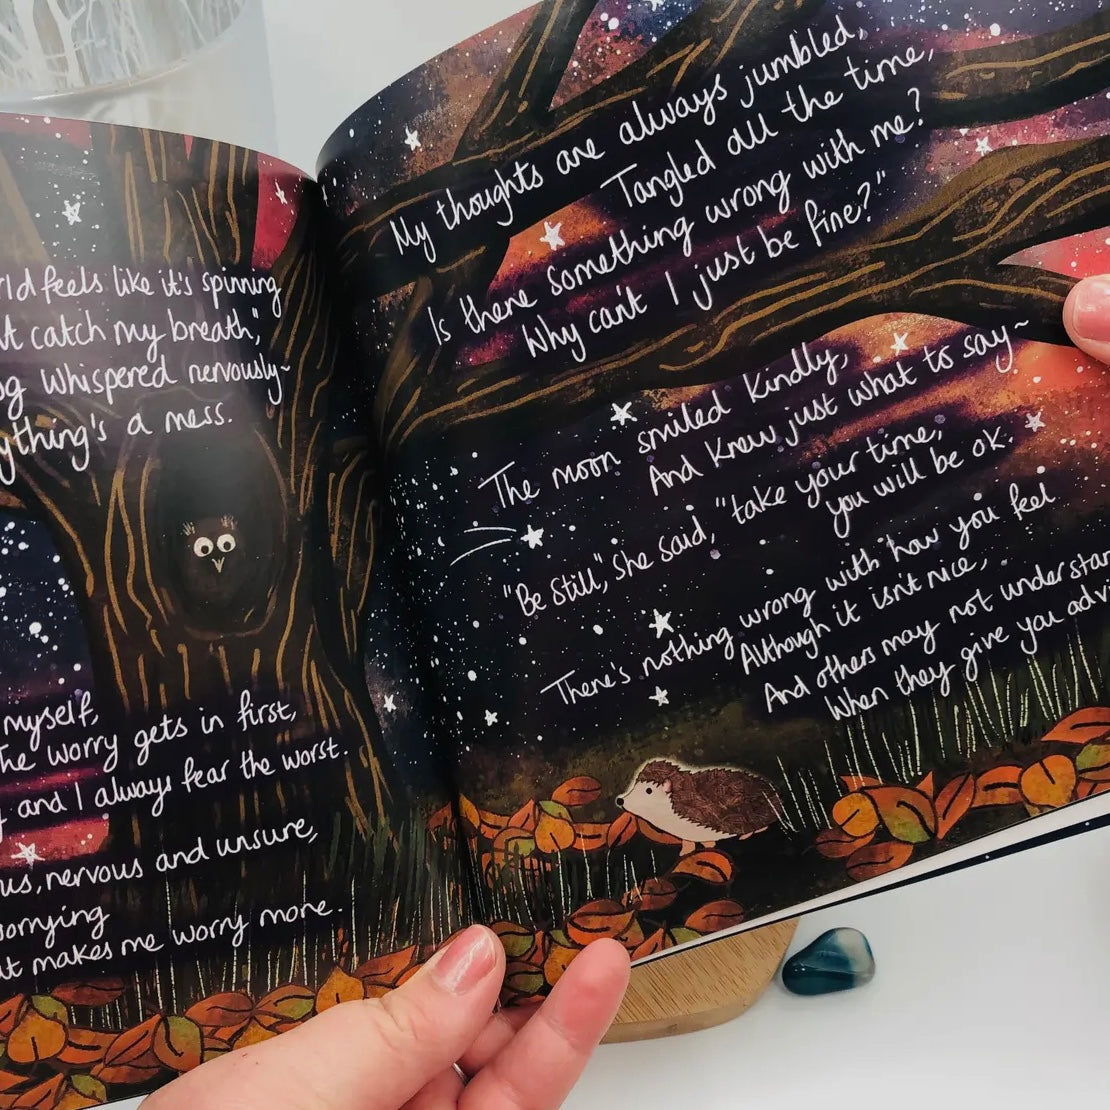 feels like it's spinning
catch my breath,"
whispered nervously~
a mess.
myself,
The worry gets in first,
and I always fear the worst.
nervous and unsure,
makes me worry more.
My thoughts are always jumbled,
Tangled all the time,
Is there something wrong with me?
Why can't I just be fine?"
The moon smiled kindly,
And knew just what to say~
"Be Still," She said, "take your time,
you will be ok.
There's nothing wrong with how you feel
Although it isn't nice,
And others may not
When they give you